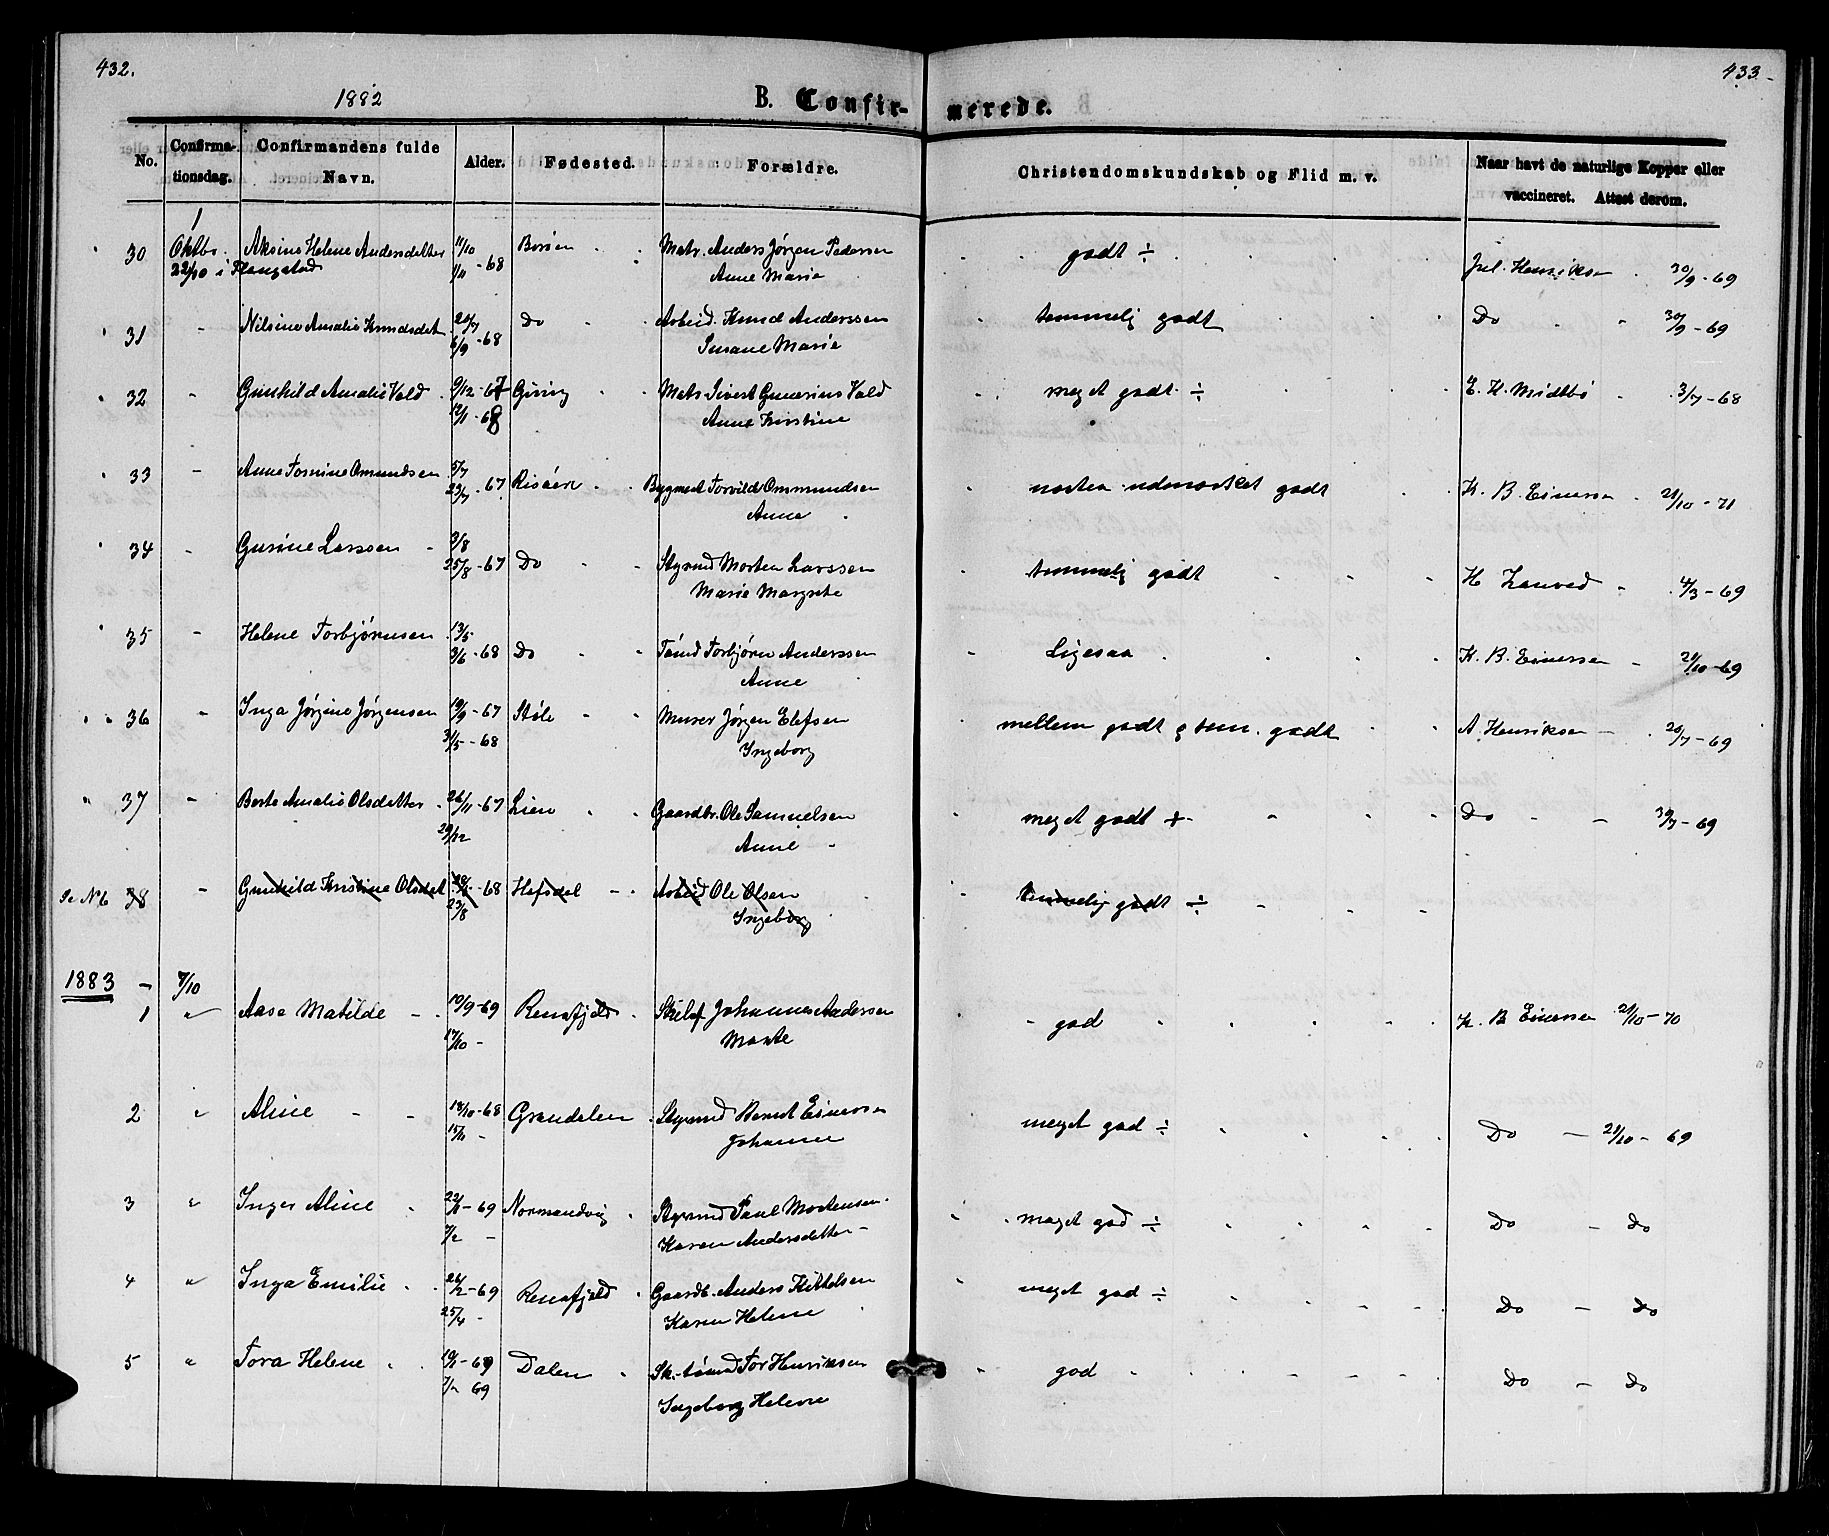 432.
433
1882
B. Confir-
merede.
No.
Confirma-
tionsdag.
Confirmandens fulde
Navn.
Alder.
Fødested.
Forældre.
Christendomskundskab og Flid m. v.
Naar havt de naturlige Kopper eller
vaccineret. Attest derom.
1
30 Oktbr. Aksine Helene Andersdatter 11/10 Borøen Matr. Anders Jørgen Pedersen godt ÷ Jul. Henriksen 30/9-69
22/10 i Flangstad 1/11-68 Anne Marie
31 - Nilsine Amalie Knudsdat. 20/7 Do Arbeid. Knud Anderssen temmelig godt Do 30/9-69
6/9-68 Susane Marie
32 - Gunhild Amalie Vold 9/12-67 Gjeving Matr. Sivert Gunerius Vold meget godt ÷ E. K. Midtbø 3/7-68
12/1-68 Anne Kirstine
33 - Anne Tomine Omundsen 5/7 Risøen Bygmest Torvild Ommundsen næsten udmærket godt K. B. Einersen 21/10-71
23/7-67 Anne
34 - Gusine Larssen 3/8 Styrmd Morten Larssen temmelig godt H Lauved 4/3-69
25/8-67 Do Marie Margrete
35 - Helene Torbjørnsen 13/5
3/6-68 Do Tømd Torbjørn Anderssen Ligesaa K. B. Einersen 21/10-69
Anne
36 - Inga Jørgine Jørgensen 19/9-67 Støle Murer Jørgen Elefsen mellem godt og tem. godt A. Henriksen 20/7-69
31/5-68 Ingeborg
37 - Berte Amalie Olsdatter 26/11-67 Lien Gaardbr. Ole Samuelsen meget godt + Do 30/7-69
29/12 Anne
Se No 6 38 - Gunhild Kristine Olsdat -68 Hefsdal Arbeid Ole Olsen temmelig godt ÷
23/8 Ingeborg
1883 - 7/10
1 " Aase Matilde 10/9-69 Rensfjeld Skilsf Johannes Andersen god K. B Einersen 21/10-70
17/10 - Marte
2 " Aline 18/10-68 Grændalen Styrmd Bernt Einersen meget god ÷ Do - 21/10-69
15/11 - Johanne
3 " Inger Aline 22/1-69 Normandvig Styrmd Paul Mortensen meget god ÷ Do - Do
7/2 - Karen Andersdatter
4 " Inga Emilie 26/2-69 Rensfjeld Gaardb. Anders Kittelsen meget god ÷ Do - Do
25/4 - Karen Helene
5 " Tora Helene 10/1-69 Dalen Sk.-tømd Tor Henriksen god Do - Do
7/2 69 Ingeborg Helene